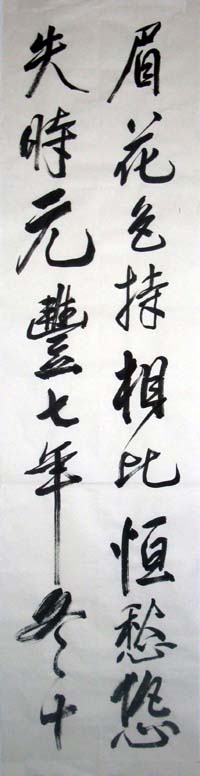 眉花色持相比恒愁恐
失時元豐七年冬十